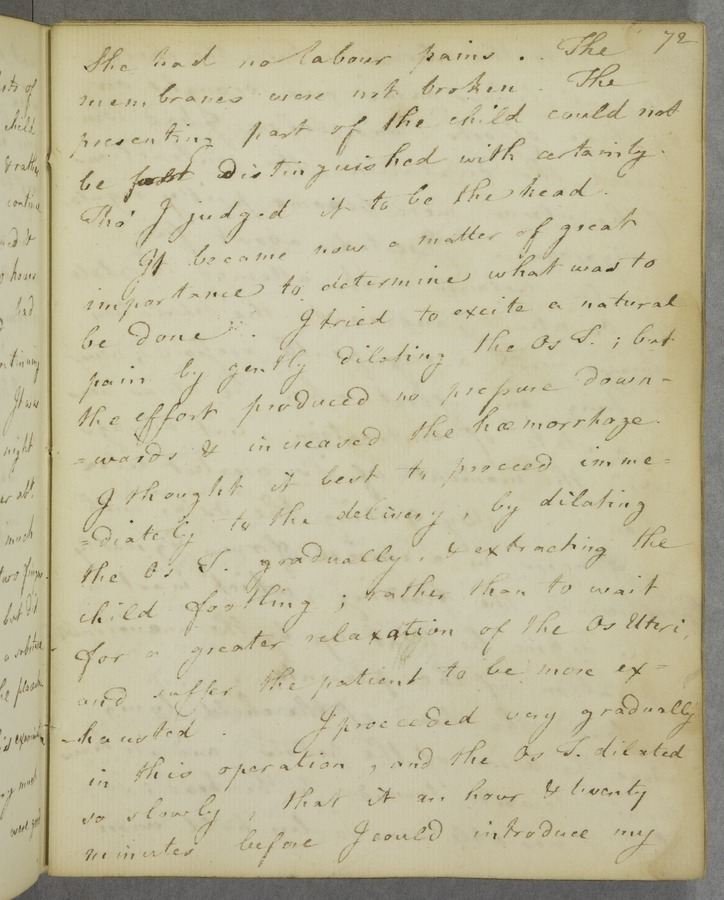 72
She had no labour pains . . The
membranes were not broken . The
presenting part of the child could not
be distinguished with certainty.
Tho' I judged it to be the head .
It became now a matter of great
importance to determine what was to
be done . I tried to excite a natural
pain by gently dilating the Os T. ; but
the effort produced no pressure down=
=wards & increased the hæmorrhage.
I thought it best to proceed imme=
=diately to the delivery, by dilating
the Os T. gradually, & extracting the
child footling ; rather than to wait
for a greater relaxation of the Os Uteri,
and suffer the patient to be more ex=
hausted . I proceeded very gradually
in this operation , and the Os T. dilated
so slowly , that it an hour & twenty
minutes before I could introduce my